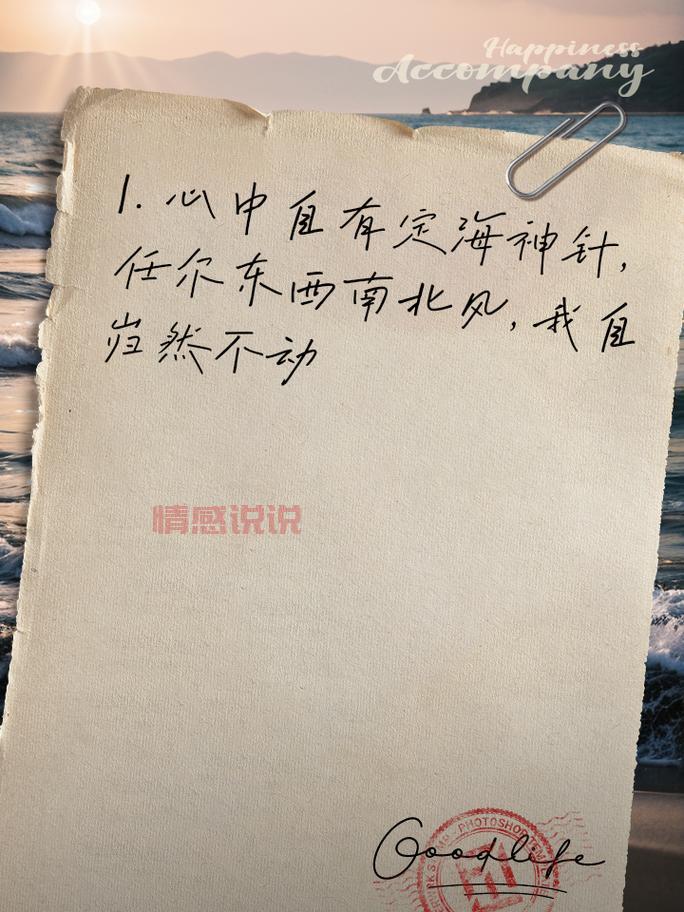 Happiness
Accompany
1. 心中自有定海神针,
任尔东西南北风, 我自
岿然不动
情感说说
PHOTOSHOP
Goodlife